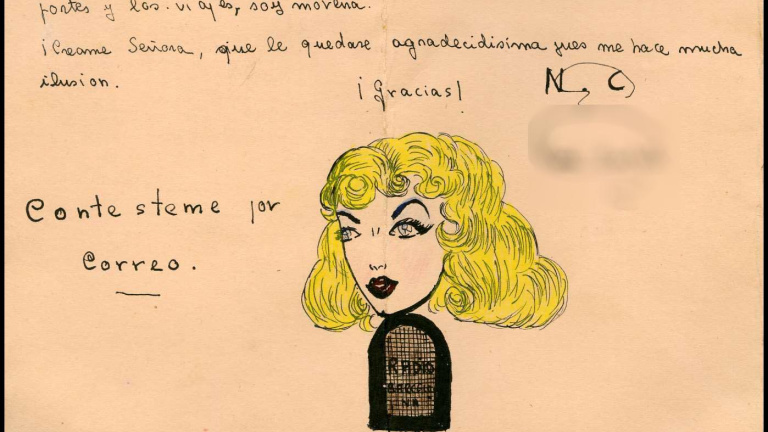 portes y los viajes, soy morena.
¡Creame Señora, que le quedare agradecidisima pues me hace mucha
ilusion.
¡Gracias!
N. C
Contesteme por
Correo.
RADIO